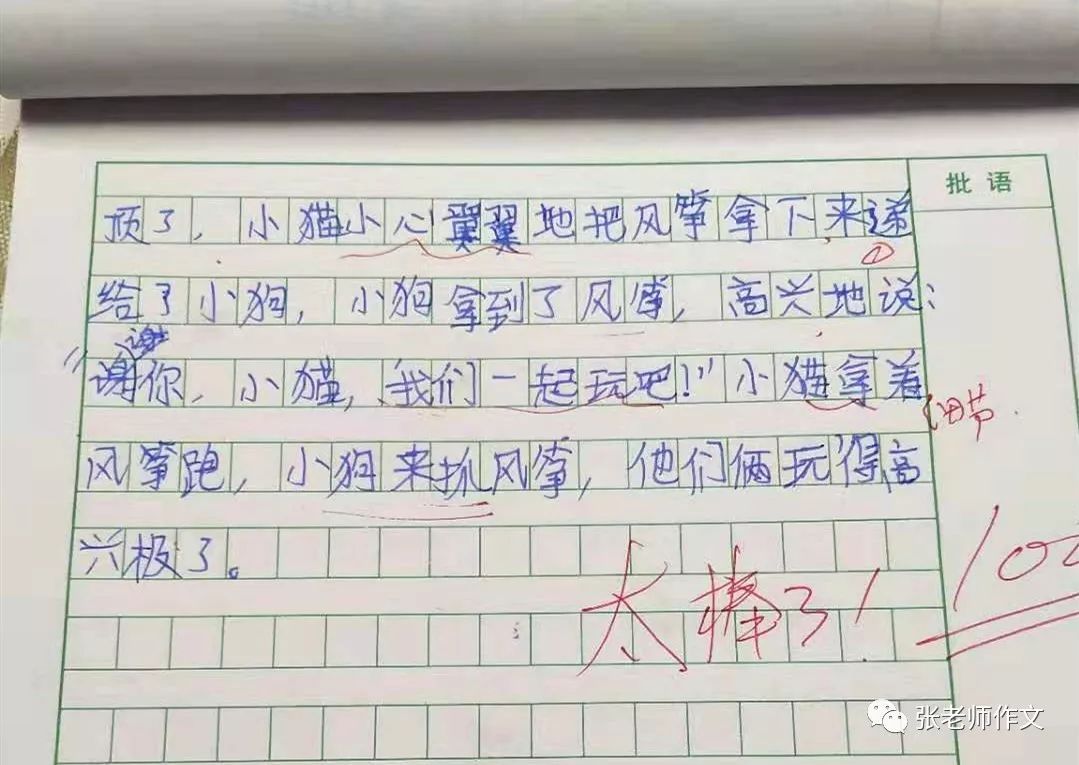 批语
顶了，小猫小心翼翼地把风筝拿下来递
给了小狗，小狗拿到了风筝，高兴地说：
“谢谢你，小猫，我们一起玩吧！”小猫拿着
风筝跑，小狗来抓风筝，他们俩玩得高
兴极了。
细节
太棒了！
张老师作文